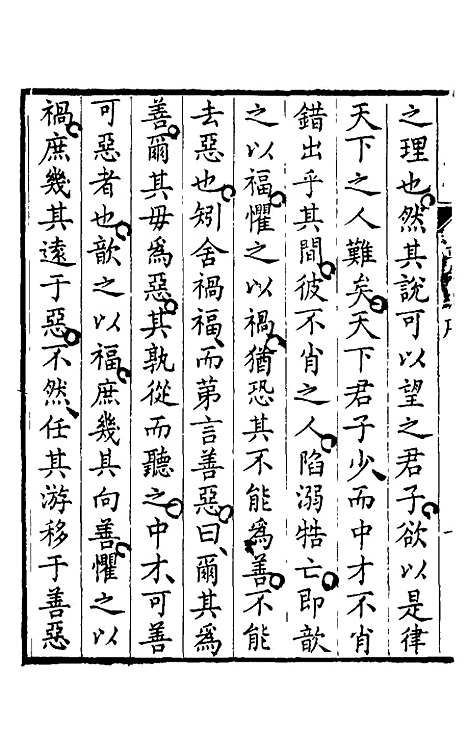 之理也然其說可以望之君子欲以是律
天下之人難矣天下君子少而中才不肖
錯出乎其間彼不肖之人陷溺牿亡即歆
之以福懼之以禍猶恐其不能為善不能
去惡也矧舍禍福而第言善惡曰爾其為
善爾其毋為惡其孰從而聽之中才可善
可惡者也歆之以福庶幾其向善懼之以
禍庶幾其遠于惡不然任其游移于善惡